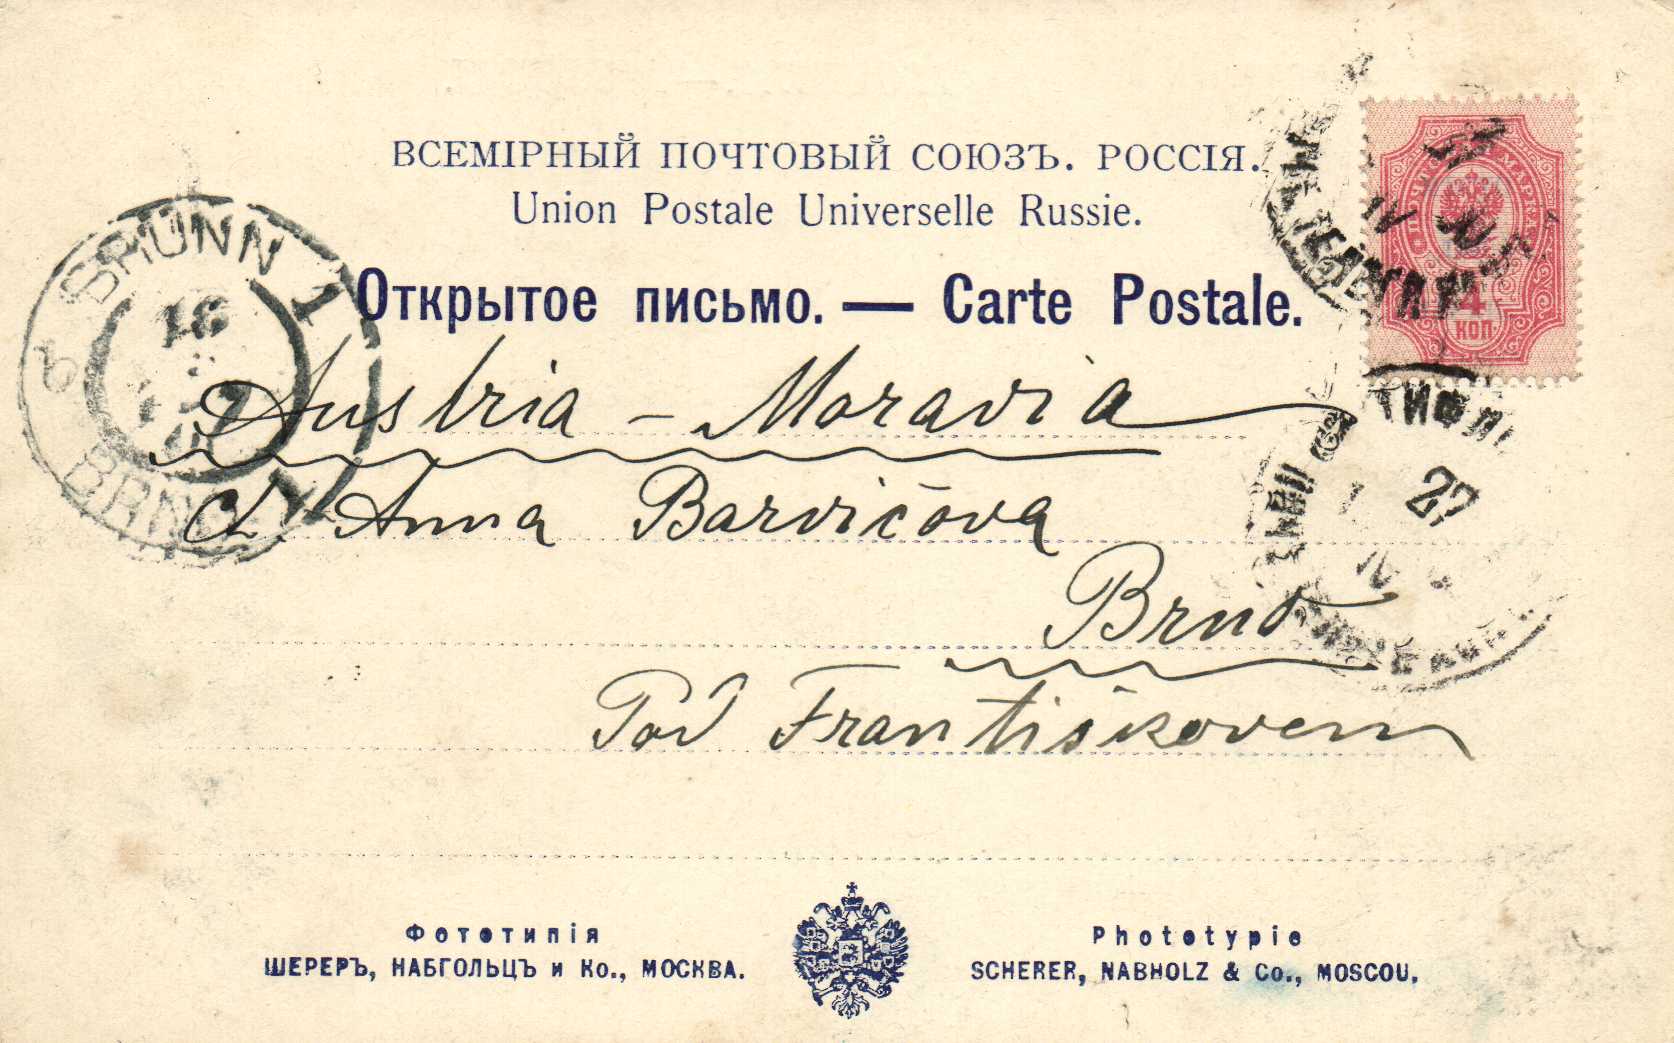 ВСЕМІРНЫЙ ПОЧТОВЫЙ СОЮЗЪ. РОССІЯ.
Union Postale Universelle Russie.
Открытое письмо. — Carte Postale.
4
КОП
BRÜNN 1
BRNO
Austria - Moravia
Anna Barvičova
27
Brno
Pod Františkovem
Фототипія
ШЕРЕРЪ, НАБГОЛЬЦЪ и Ко., МОСКВА.
Phototypie
SCHERER, NABHOLZ & Co., MOSCOU.